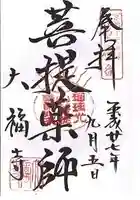 奉拝
平成廿七年
九月五日
菩提薬師
大福寺